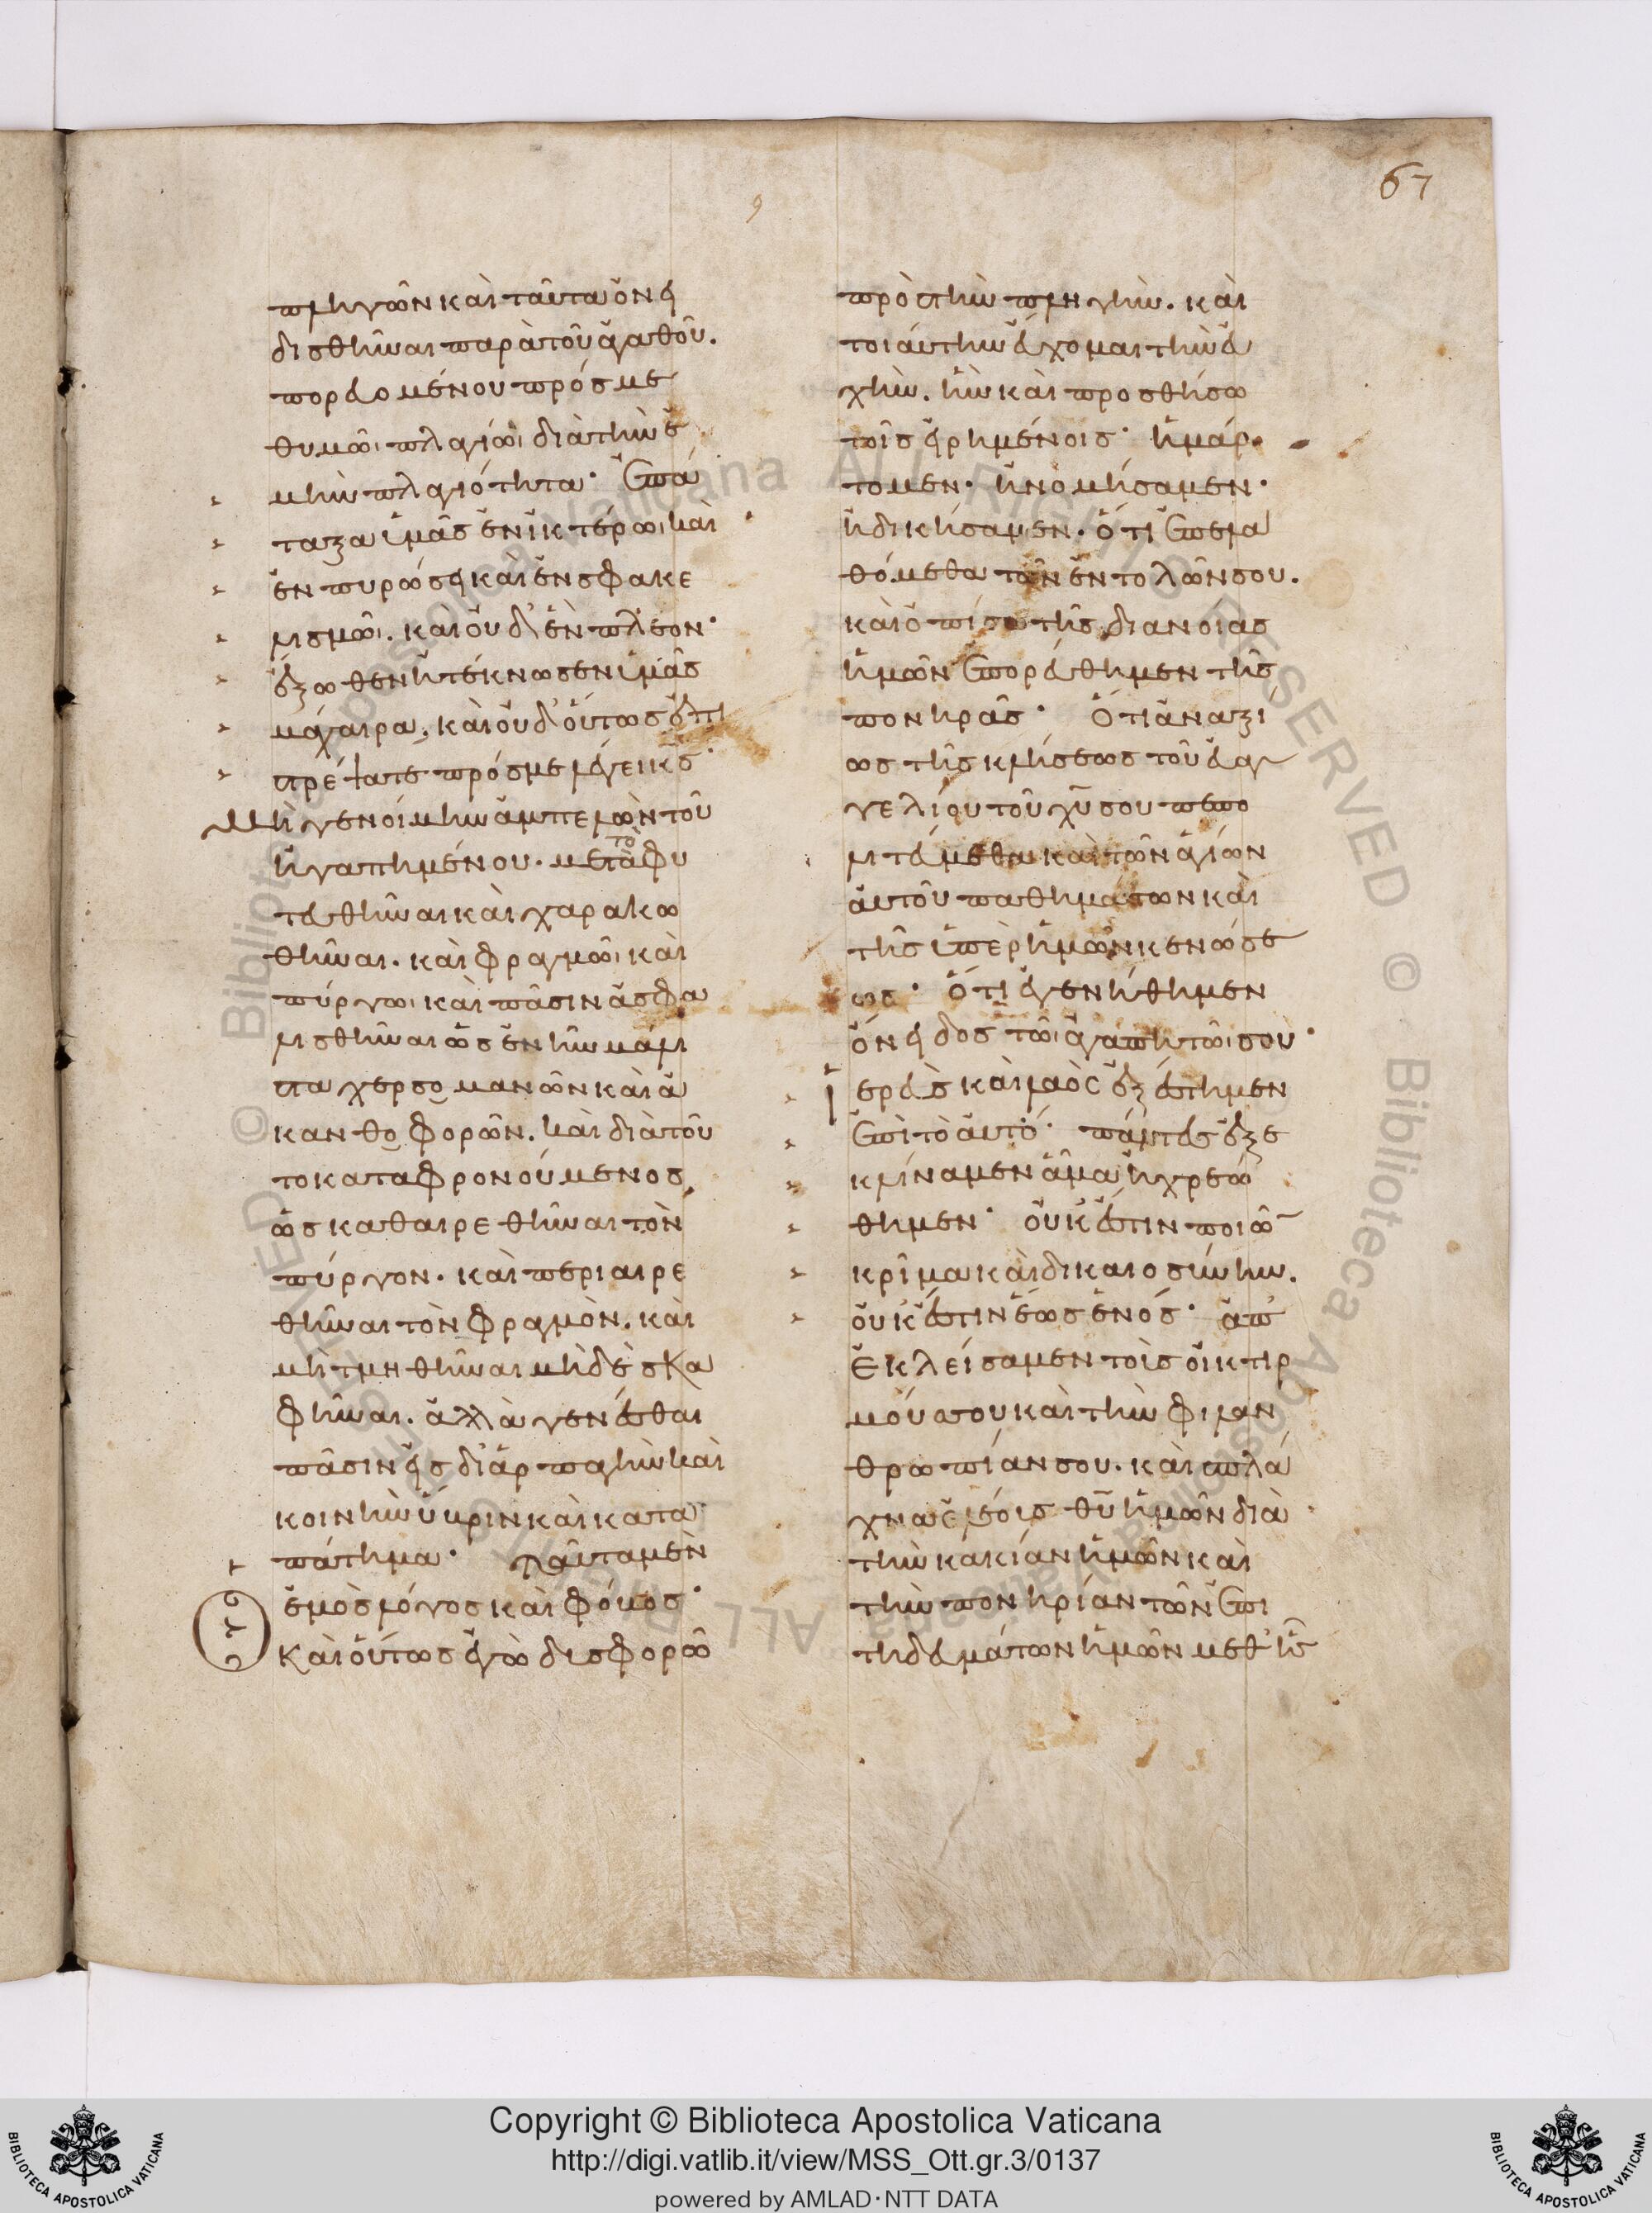 67
πληγῶν καὶ ταῦτα ὀνει
δισθῆναι παρὰ τοῦ ἀγαθοῦ.
πορευομένου πρός με
θυμῶι πλαγίωι διὰ τὴν ἐ
μὴν πλαγιότητα· ἐπά
ταξα ὑμᾶς ἐν ἰκτέρωι καὶ
ἐν πυρώσει καὶ ἐν σφακε
λισμῶι. καὶ οὐδ' ἐν πλέον·
ἔξωθεν ἠτέκνωσεν ὑμᾶς
μάχαιρα. καὶ οὐδ' οὕτως ἐπε
στρέψατε πρός με λέγει κς·
Μὴ γενοίμην ἀμπελὼν τοῦ
ἠγαπημένου. μετὰ τὸ φυ
τευθῆναι καὶ χαρακω
θῆναι. καὶ φραγμῶι καὶ
πύργωι καὶ πᾶσιν ἀσφα
λισθῆναι ὡς ἐνῆν μάλι
στα χερσομανῶν καὶ ἀ
κανθοφορῶν. καὶ διὰ τοῦ
το καταφρονούμενος
ὡς καθαιρεθῆναι τὸν
πύργον. καὶ περιαιρε
θῆναι τὸν φραγμὸν. καὶ
μὴ τμηθῆναι μηδὲ σκα
φῆναι. ἀλλὰ γενέσθαι
πᾶσιν εἰς διαρπαγὴν καὶ
κοινὴν ὕβριν καὶ κατα
πάτημα· ταῦτα μὲν
ἐμὸς λόγος καὶ φόβος·
Καὶ οὕτως ἐγὼ δισφορῶ
πρὸς τὴν πληγὴν. καὶ
τοιαύτην εὔχομαι τὴν εὐ
χὴν. ἣν καὶ προσθήσω
τοῖς εἰρημένοις· ἡμάρ
τομεν. ἠνομήσαμεν·
ἠδικήσαμεν. ὅτι ἐπελα
θόμεθα τῶν ἐντολῶν σου.
καὶ ὀπίσω τῆς διανοίας
ἡμῶν ἐπορεύθημεν τῆς
πονηρᾶς· Ὅτι ἀναξί
ως τῆς κλήσεως τοῦ εὐαγ
γελίου τοῦ χυ σου πεπο
λιτεύμεθα καὶ τῶν ἁγίων
αὐτοῦ παθημάτων καὶ
τῆς ὑπὲρ ἡμῶν κενώσε
ως· Ὅτι ἐγενήθημεν
ὄνειδος τῶι ἀγαπητῶι σου·
Ἱερεὺς καὶ λαὸς ἐξέστημεν
ἐπὶ τὸ αὐτό· πάντες ἐξε
κλίναμεν ἅμα ἠχρεώ
θημεν· οὐκ ἔστιν ποιῶν
κρῖμα καὶ δικαιοσύνην.
οὐκ ἔστιν ἕως ἑνός· ἀπ
εκλείσαμεν τοὺς οἰκτιρ
μούς σου καὶ τὴν φιλαν
θρωπίαν σου. καὶ σπλά
χνα ἐλέους θυ ἡμῶν διὰ
τὴν κακίαν ἡμῶν καὶ
τὴν πονηρίαν τῶν ἐπι
τηδευμάτων ἡμῶν μεθ' ἧς
BIBLIOTECA APOSTOLICA VATICANA
Copyright © Biblioteca Apostolica Vaticana
http://digi.vatlib.it/view/MSS_Ott.gr.3/0137
powered by AMLAD·NTT DATA
BIBLIOTECA APOSTOLICA VATICANA